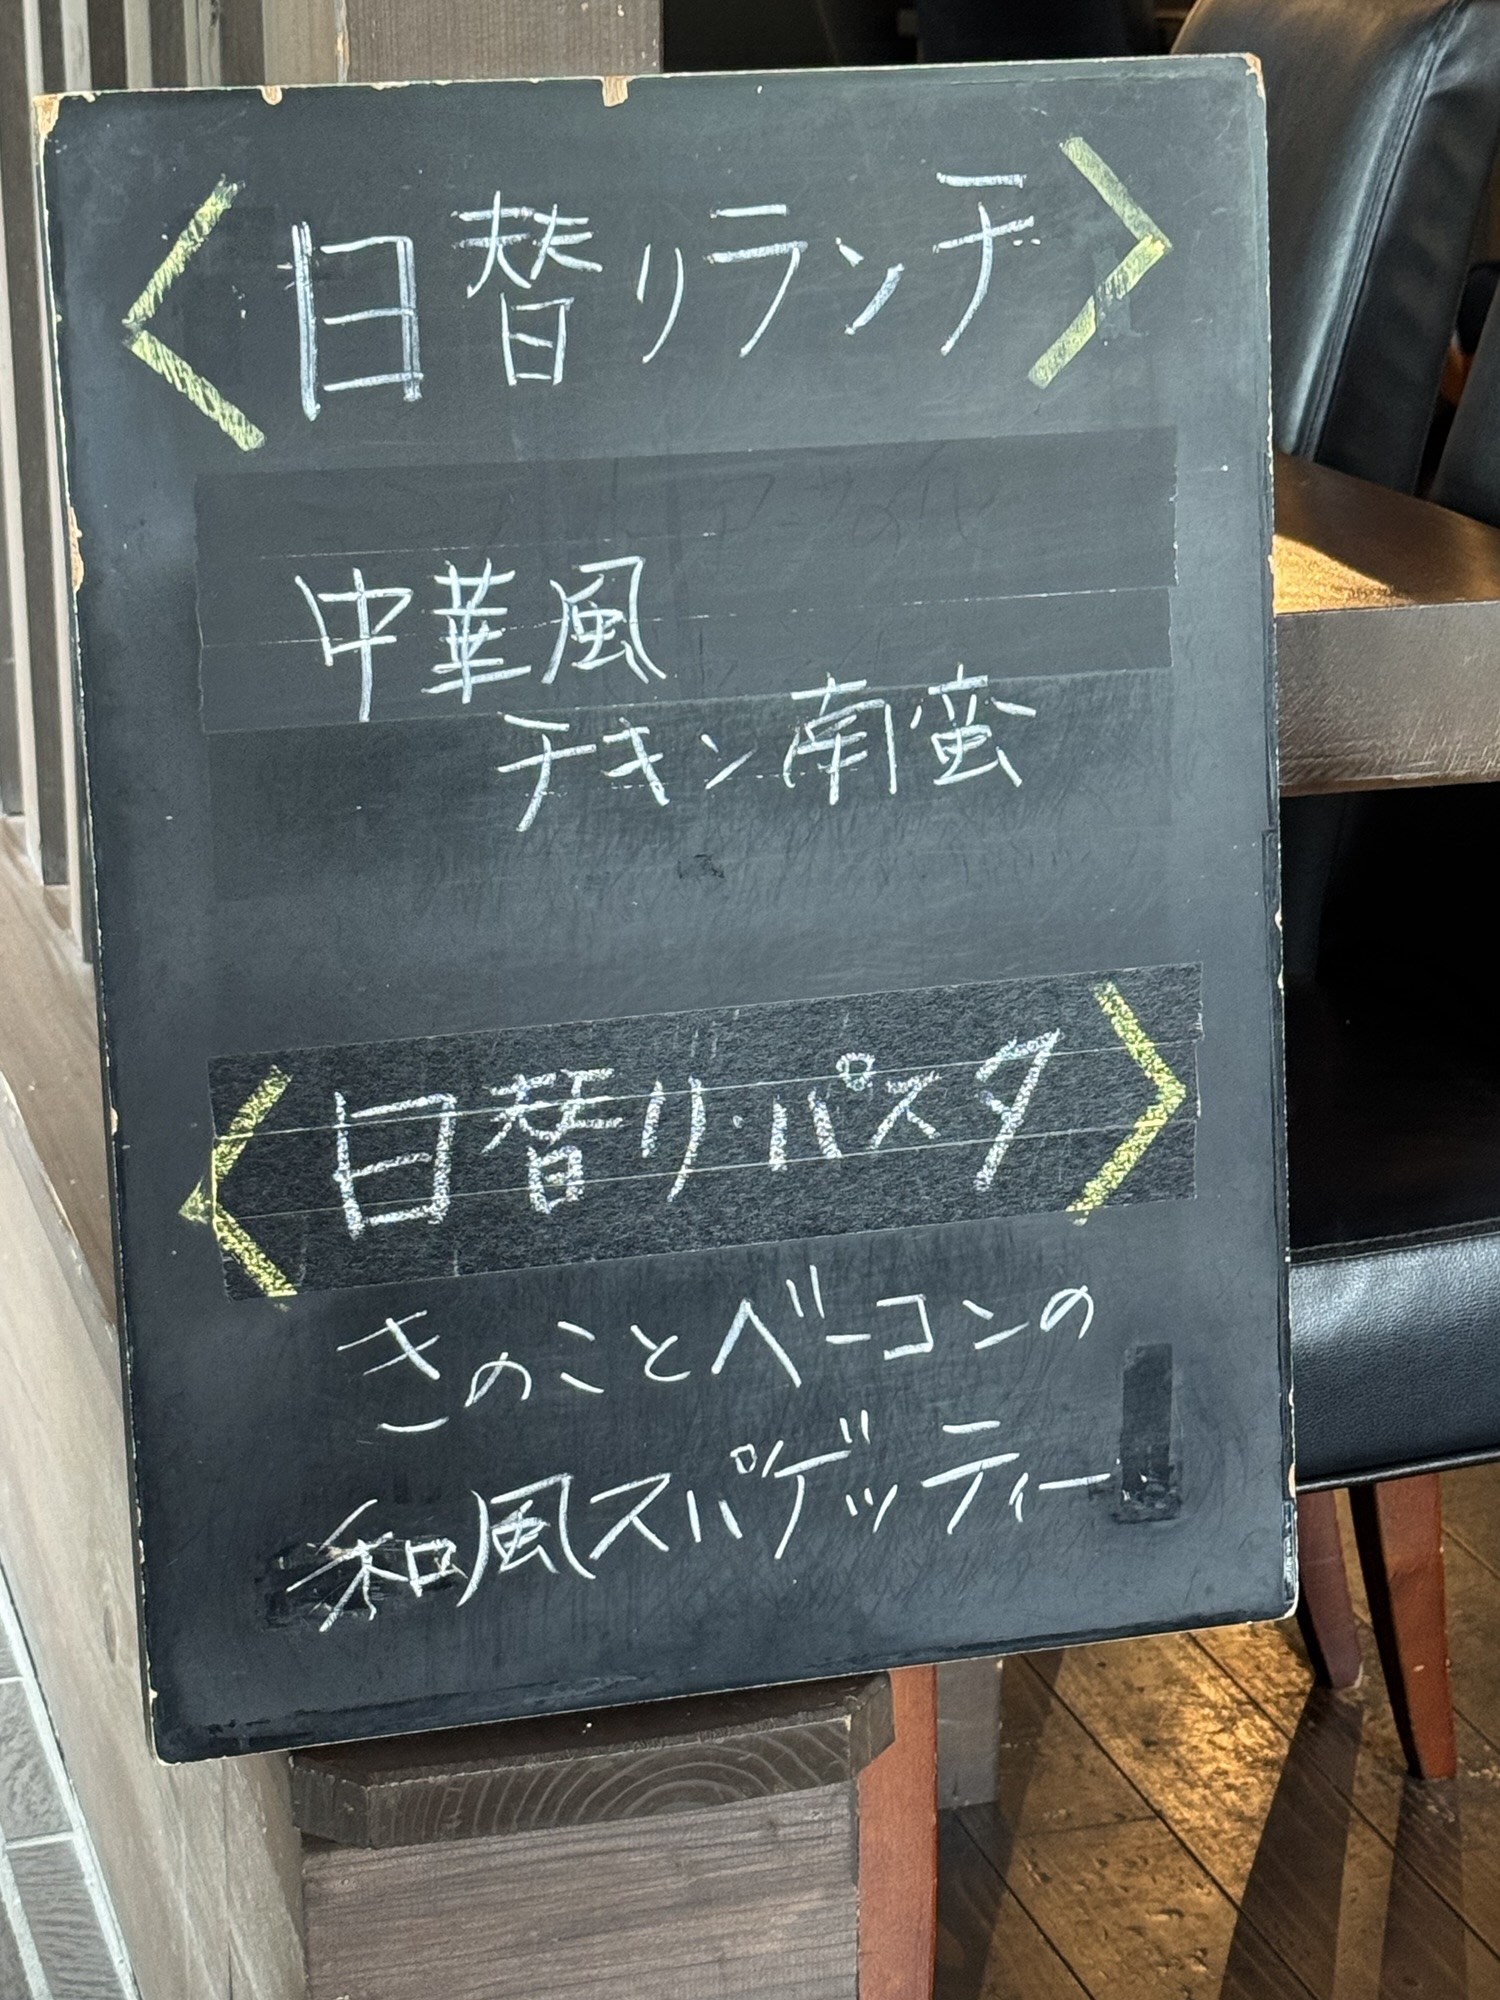 〈日替りランチ〉
中華風
チキン南蛮
〈日替り・パスタ〉
きのことベーコンの
和風スパゲッティー